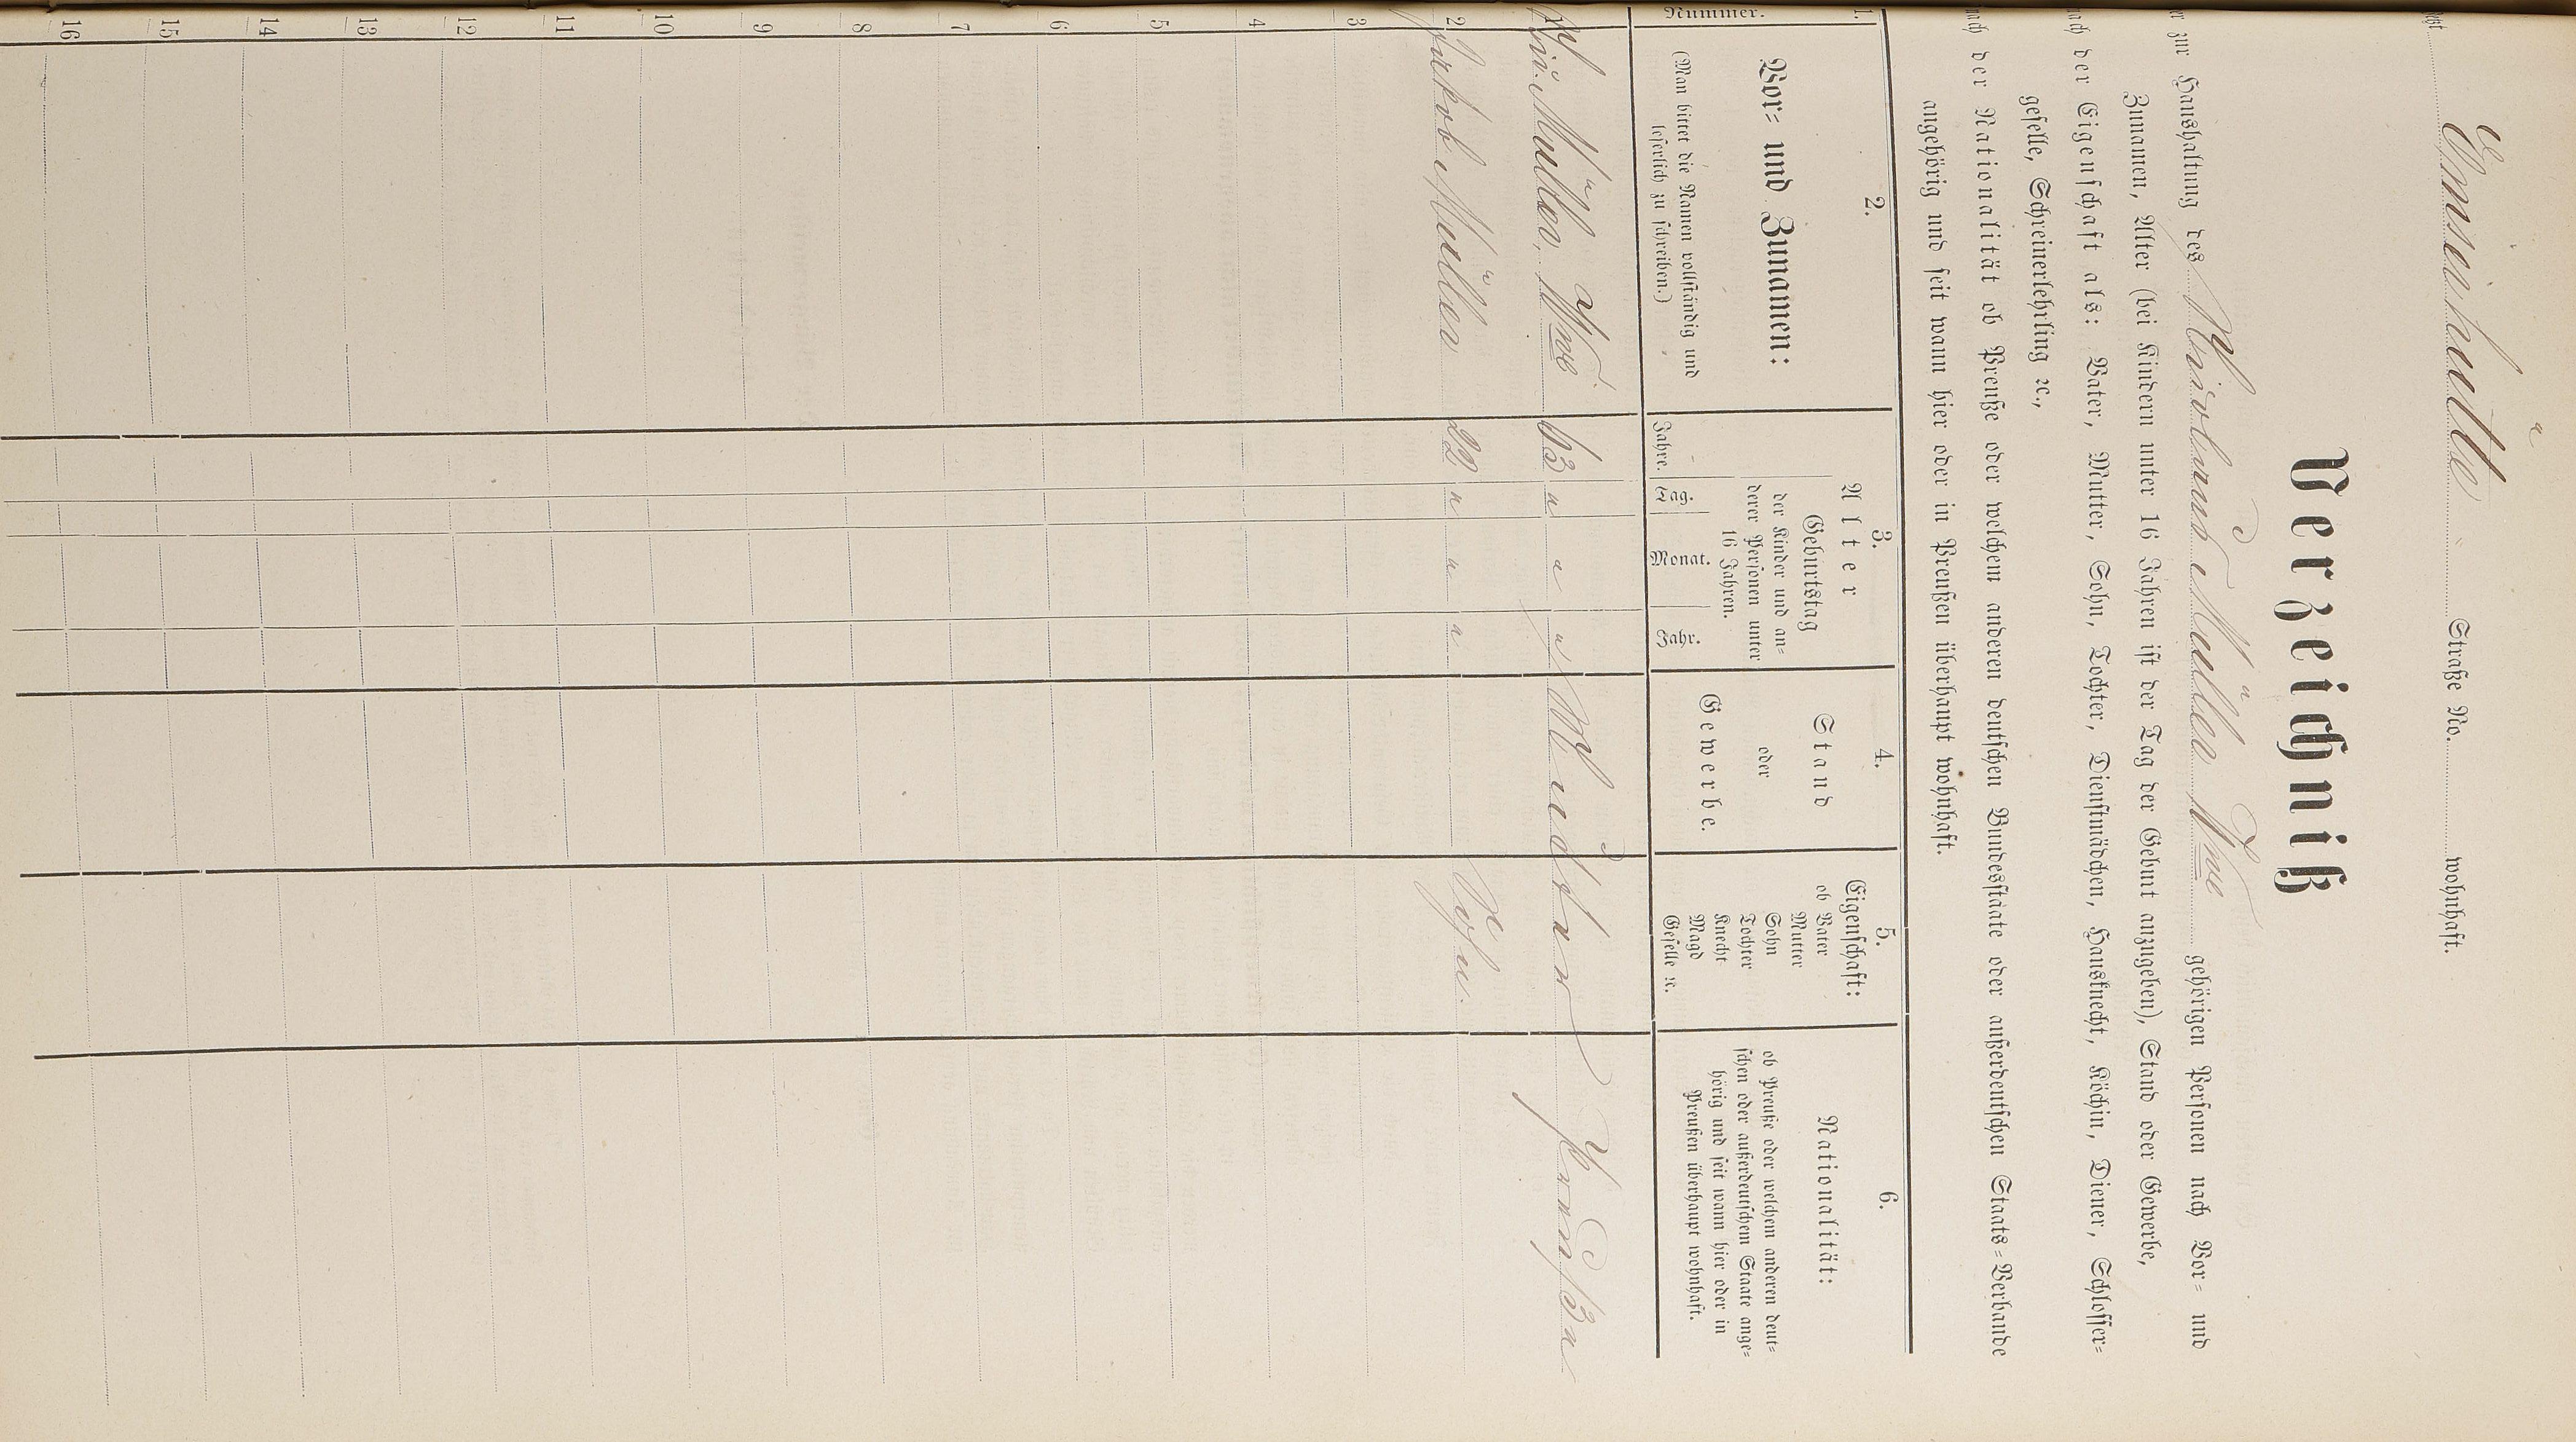 Emserhütte Straße No. wohnhaft.
Verzeichniß
zur Haushaltung des Müller Wwe gehörigen Personen nach Vor- und
Zunamen, Alter (bei Kindern unter 16 Jahren ist der Tag der Geburt anzugeben), Stand oder Gewerbe,
nach der Eigenschaft als: Vater, Mutter, Sohn, Tochter, Dienstmädchen, Hausknecht, Köchin, Diener, Schlosser-
geselle, Schreinerlehrling ꝛc.,
nach der Nationalität ob Preuße oder welchem anderen deutschen Bundesstaate oder außerdeutschen Staats-Verbande
angehörig und seit wann hier oder in Preußen überhaupt wohnhaft.
1. 2. 3. 4. 5. 6.
Nummer.
Vor- und Zunamen:
(Man bittet die Namen vollständig und
leserlich zu schreiben.)
Alter
Geburtstag
der Kinder und an-
derer Personen unter
16 Jahren.
Jahre. Tag. Monat. Jahr.
Stand
oder
Gewerbe.
Eigenschaft:
ob Vater
Mutter
Sohn
Tochter
Knecht
Magd
Geselle ꝛc.
Nationalität:
ob Preuße oder welchem anderen deut-
schen oder außerdeutschem Staate ange-
hörig und seit wann hier oder in
Preußen überhaupt wohnhaft.
1 Müller, Wwe 63 " " " Mutter Preußen
2 Jakob Müller 22 " " " Sohn.
3
4
5
6
7
8
9
10
11
12
13
14
15
16